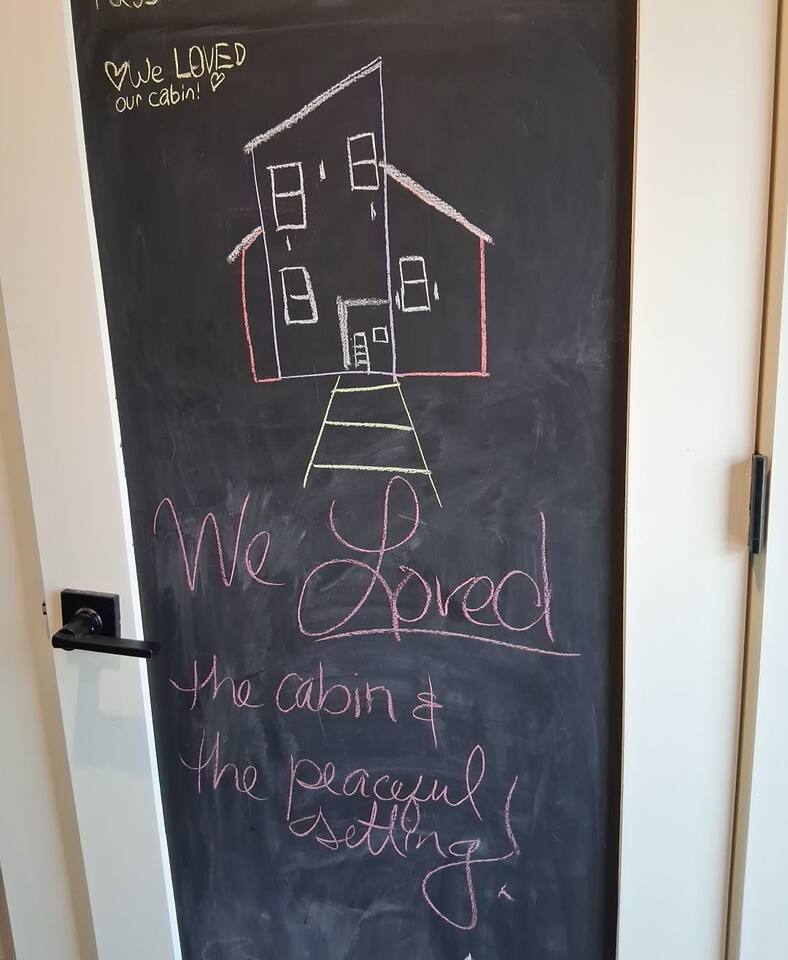 ♡We LOVED
our cabin! ♡
We Loved
the cabin &
the peaceful
setting!